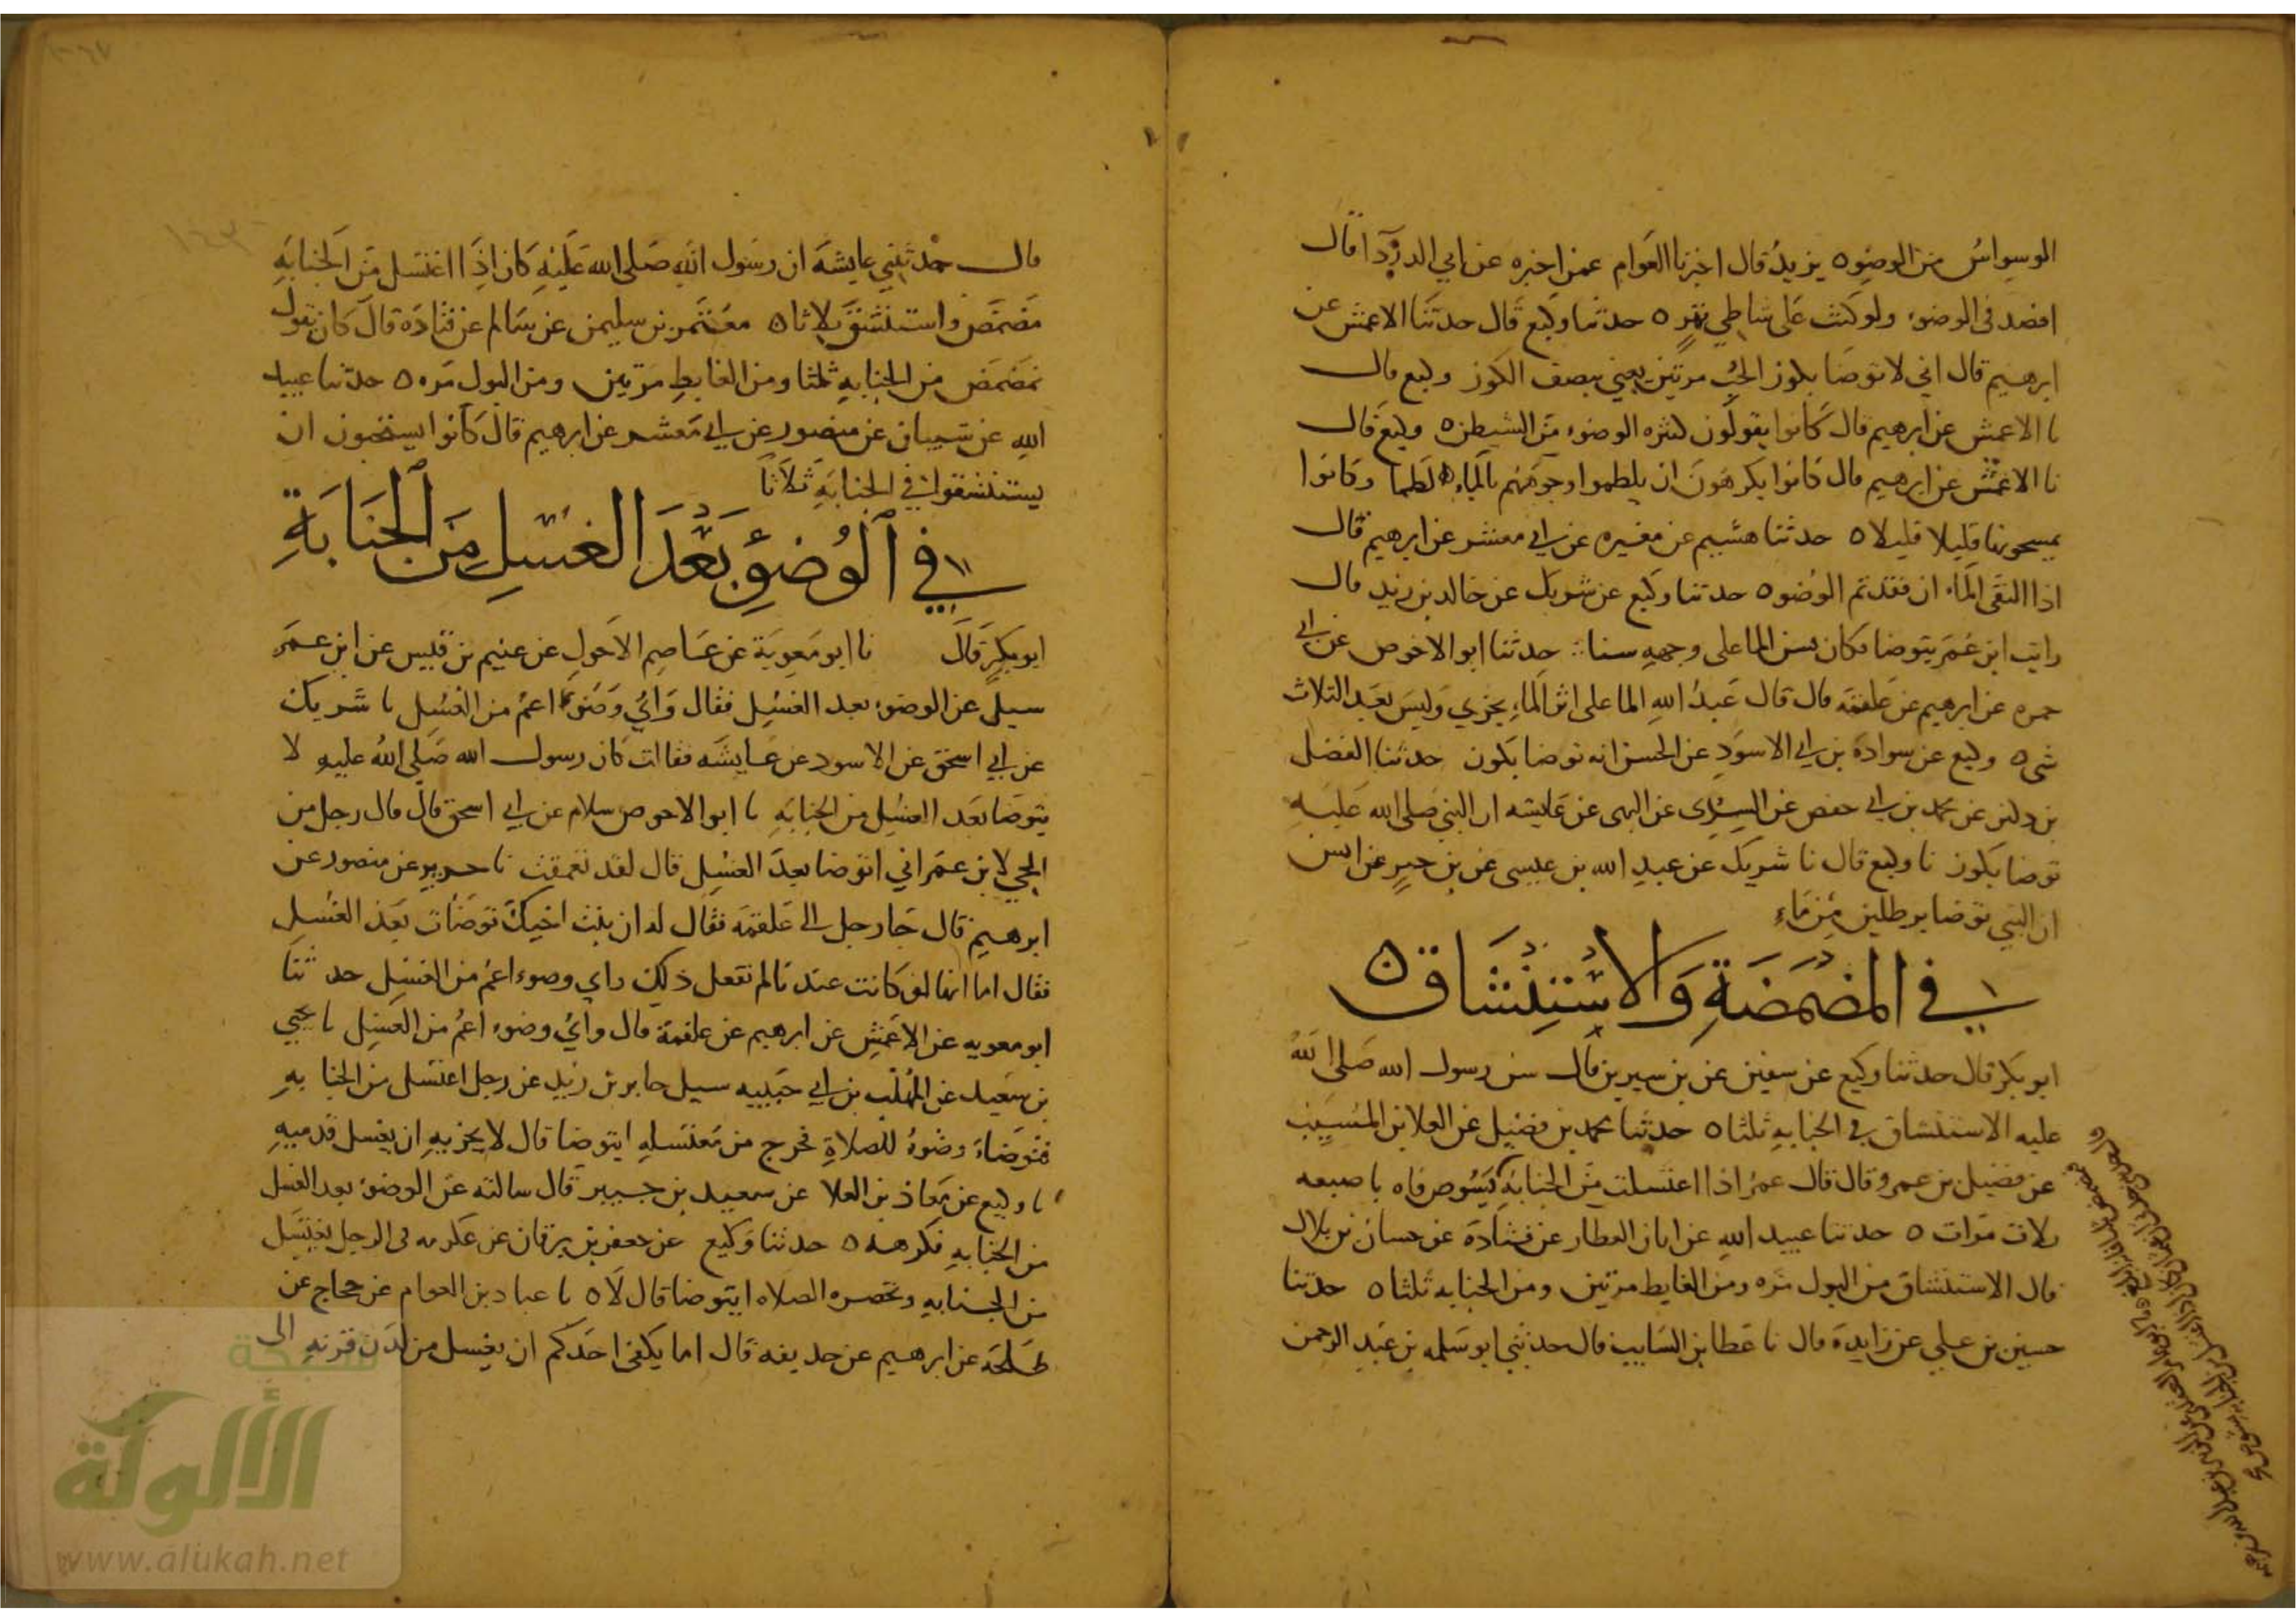 الوسواس من الوضوء ٥ يزيد قال اخبرنا العوام عمن اخبره عن ابي الدرداء قال
اقصد في الوضوء ولو كنت على شاطي نهر ٥ حدثنا وكيع قال حدثنا الاعمش عن
ابرهيم قال اني لاتوضا بكوز الحب مرتين يعني بنصف الكوز وكيع قال
نا الاعمش عن ابرهيم قال كانوا يقولون كثره الوضوء من الشيطن ٥ وكيع قال
نا الاعمش عن ابرهيم قال كانوا يكرهون ان يلطموا وجوههم بالماء لطما وكانوا
يمسحونها قليلا قليلا ٥ حدثنا هشيم عن مغيره عن ابي معشر عن ابرهيم قال
اذا التقى الماء ان فقد تم الوضوء ٥ حدثنا وكيع عن شريك عن خالد بن زيد قال
رايت ابن عمر يتوضا فكان يسن الما على وجهه سنا حدثنا ابو الاحوص عن ابي
حمزه عن ابرهيم عن علقمه قال قال عبد الله الما على اثر الماء يجزي وليس بعد الثلاث
شى ٥ وكيع عن سوادة بن ابي الاسود عن الحسن انه توضا بكوز حدثنا الفضل
بن دكين عن محمد بن ابي حفص عن السدى عن البهى عن عايشه ان النبي صلى الله عليه
توضا بكوز نا وكيع قال نا شريك عن عبد الله بن عيسى عن بن جبر عن انس
ان النبي توضا برطلين من ماء
في المضمضة والاستنشاق ٥
ابو بكر قال حدثنا وكيع عن سفين عن بن سيرين قال سن رسول الله صلى الله
عليه الاستنشاق في الجنابه ثلثا ٥ حدثنا محمد بن فضيل عن العلا بن المسيب
عن فضيل بن عمرو قال قال عمر اذا اغتسلت من الجنابة فاه باصبعه
ثلاث مرات ٥ حدثنا عبيد الله عن ابان العطار عن قتادة عن حسان بن بلال
قال الاستنشاق من البول مره ومن الغايط مرتين ومن الجنابه ثلثا ٥ حدثنا
حسين بن علي عن زايدة قال نا عطا بن السايب قال حدثني ابو سلمه بن عبد الرحمن
قال حدثتني عايشة ان رسول الله صلى الله عليه كان اذا اغتسل من الجنابة
مضمض واستنشق ثلاثا ٥ معتمر بن سليمن عن سالم عن قتادة قال كان يقول
تمضمض من الجنابة ثلثا ومن الغايط مرتين ومن البول مره ٥ حدثنا عبيد
الله عن شيبان عن منصور عن ابي معشر عن ابرهيم قال كانوا يستحبون ان
يستنشقوا في الجنابة ثلاثا
في الوضوء بعد الغسل من الجنابة
ابو بكر قال نا ابو معوية عن عاصم الاحول عن غنيم بن قيس عن ابن عمر
سيل عن الوضوء بعد الغسل فقال واي وضوء اعم من الغسل نا شريك
عن ابي اسحق عن الاسود عن عايشه فقالت كان رسول الله صلى الله عليه لا
يتوضا بعد الغسل من الجنابة نا ابو الاحوص سلام عن ابي اسحق قال قال رجل من
الحي لابن عمر اني اتوضا بعد الغسل قال لقد تعمقت نا جرير عن منصور عن
ابرهيم قال جا رجل الى علقمة فقال له ان بنت اخيك توضات بعد الغسل
فقال اما انها لو كانت عندنا لم تفعل ذلك واي وضوء اعم من الغسل حدثنا
ابو معويه عن الاعمش عن ابرهيم عن علقمة قال واي وضوء اعم من الغسل نا يحيى
بن سعيد عن المهلب بن ابي حبيبه سيل جابر بن زيد عن رجل اغتسل من الجنابه
فتوضاء وضوه للصلاة فخرج من مغتسله ايتوضا قال لا يجزيه ان يغسل قدميه
نا وكيع عن معاذ بن العلا عن سعيد بن جبير قال سالته عن الوضوء بعد الغسل
من الجنابه فكرهه ٥ حدثنا وكيع عن جعفر بن برقان عن عكرمه في الرجل يغتسل
من الجنابه وتحضره الصلاه ايتوضا قال لا ٥ نا عباد بن العوام عن حجاج عن
طلحة عن ابرهيم عن حذيفه قال اما يكفي احدكم ان يغسل من لدن قرنه الى
شبكة
الألوكة
www.alukah.net